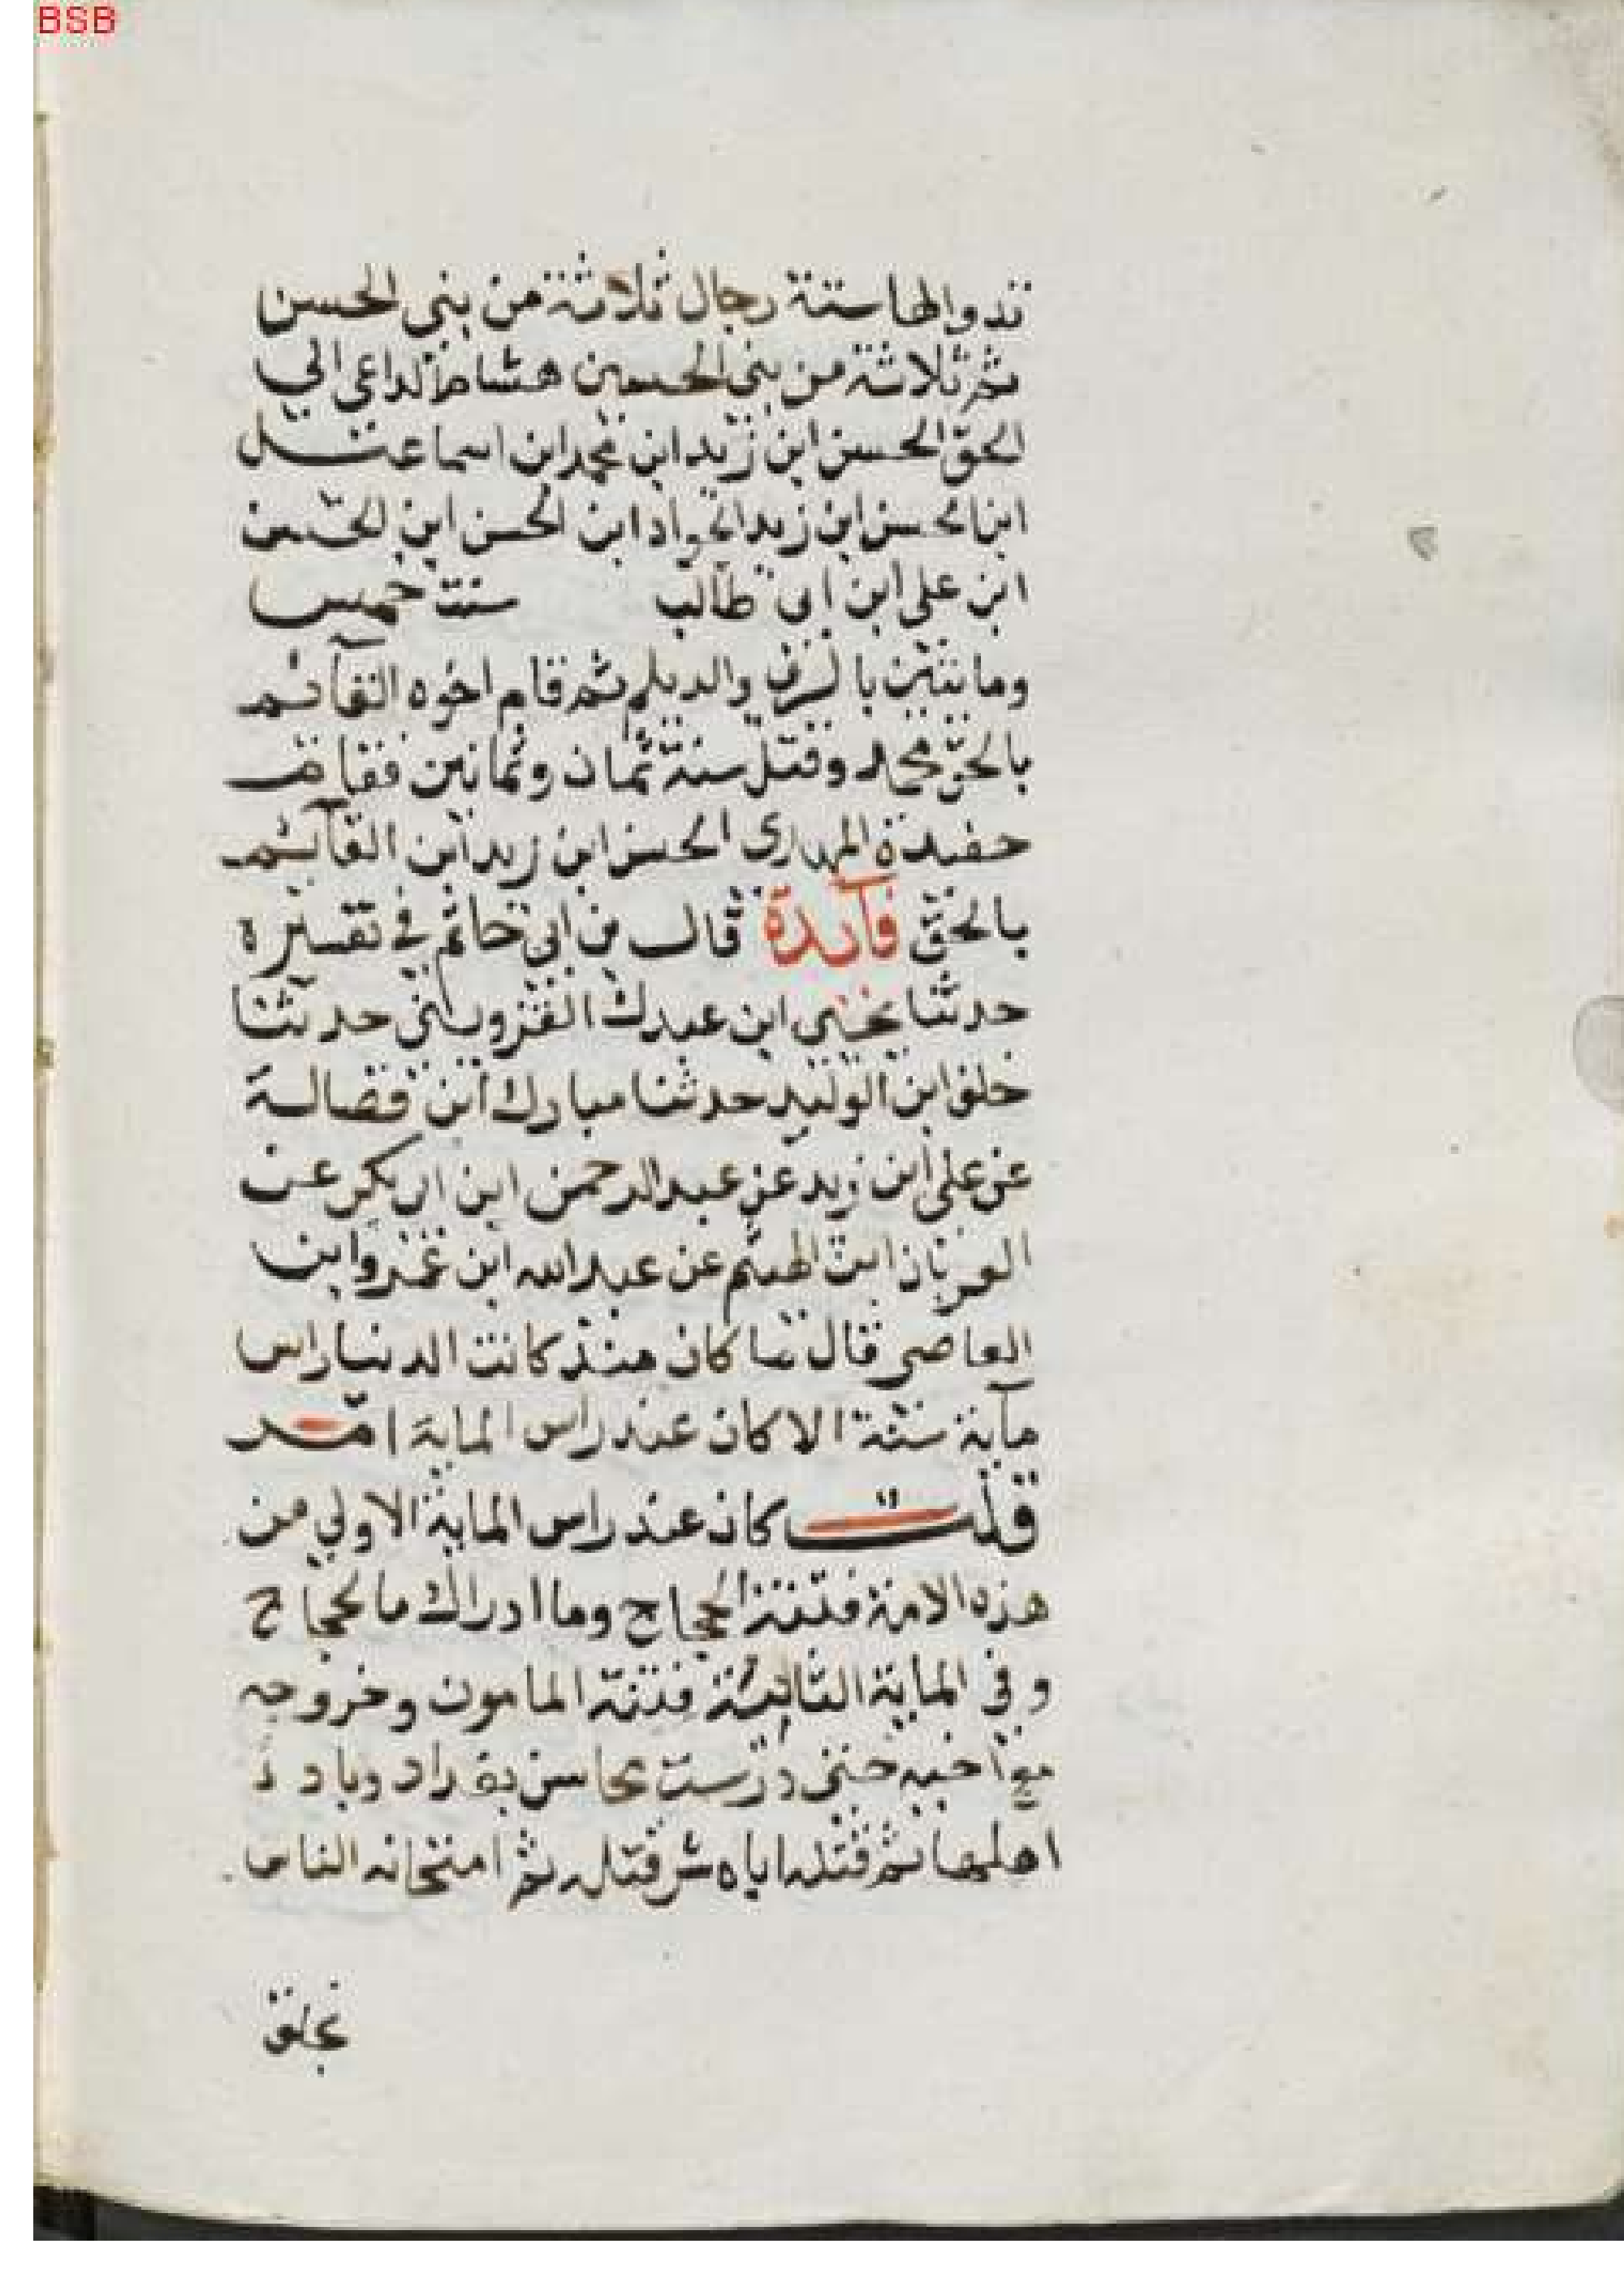 BSB
تدوالها ستة رجال ثلاثة من بني الحسن
ثم ثلاثة من بني الحسين هشام الداعي الي
الحق الحسن ابن زيد ابن محمد ابن اسماعيل
ابن الحسن ابن زيد الجواد ابن الحسن ابن الحسن
ابن علي ابن ابى طالب سنت خمس
وماىتين بالري والديلم ثم قام اخوه القآئم
بالحق محمد وقتل سنة ثمان وثمانين فقام
حفيدة المهدى الحسن ابن زيد ابن القآئم
بالحق فآىدة قال بن ابي حاتم في تفسيره
حدثنا يحيى ابن عبدك القزويني حدثنا
خلف ابن الوليد حدثنا مبارك ابن فضالة
عن على ابن زيد عن عبدالرحمن ابن ابي بكر عن
العريان ابن الهيثم عن عبدالله ابن عمرو ابن
العاصي قال ما كان منذ كانت الدنيا راس
مآية سنة الا كان عند راس المآية امر
قلت كان عند راس الماية الاولي من
هذه الامة فتنة الحجاج وما ادراك ما لحجاج
وفي الماية الثانية فتنة المامون وخروجه
مع اخيه حتى درست محاسن بغداد وباد
اهلها ثم قتله اياه شر قتله ثم امتحانه الناس
بخلق